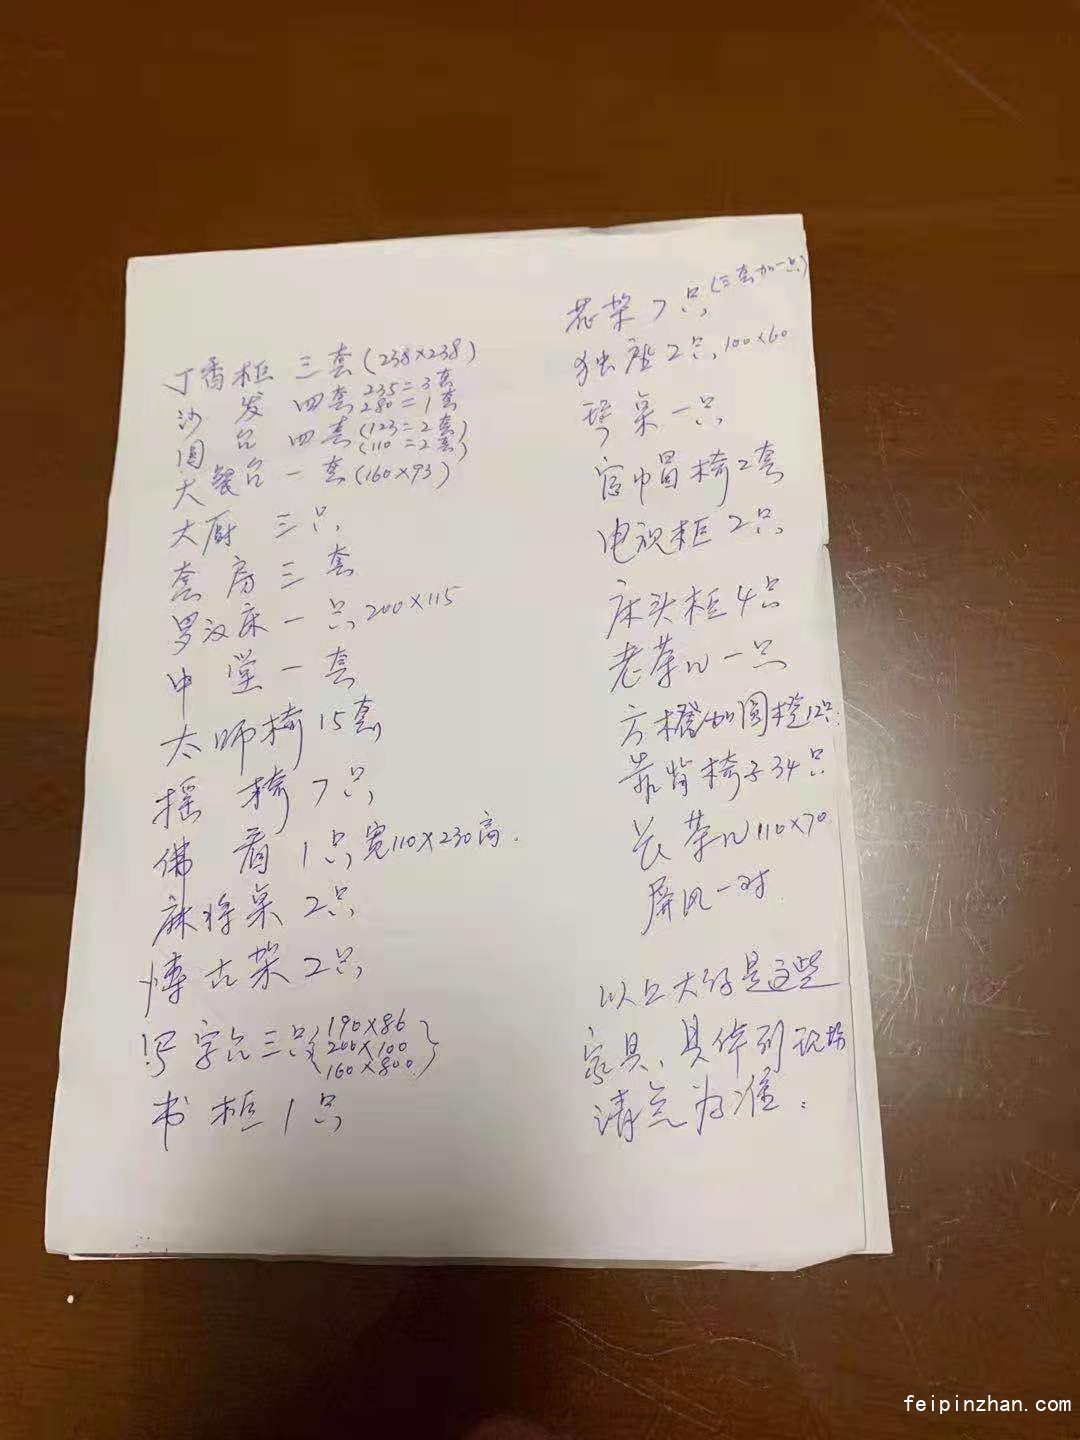 丁香柜 三套(238×238)
沙 发 四套 235=3套
280=1套
圆 台 四套(123=2套)
(110=2套)
大餐台 一套(160×93)
大厨 三只
套 房 三 套
罗汉床 一 只 200×115
中 堂 一 套
太师椅 15套
摇 椅 7只
佛 1只 宽110×230高.
麻将桌 2只
博古架 2只
写字台三只{190×86
200×100
160×800}
书 柜 1只
花架 7只(三套加一只)
独座 2只 100×60
琴桌 一只
官巾冒椅2套
电视柜 2只
床头柜 4只
老茶几 一只
方橙加圆橙12只
靠背椅子34只
长茶几110×70
屏风一对.
以上大约是这些
家具、具体到现场
清点为准:
feipinzhan.com